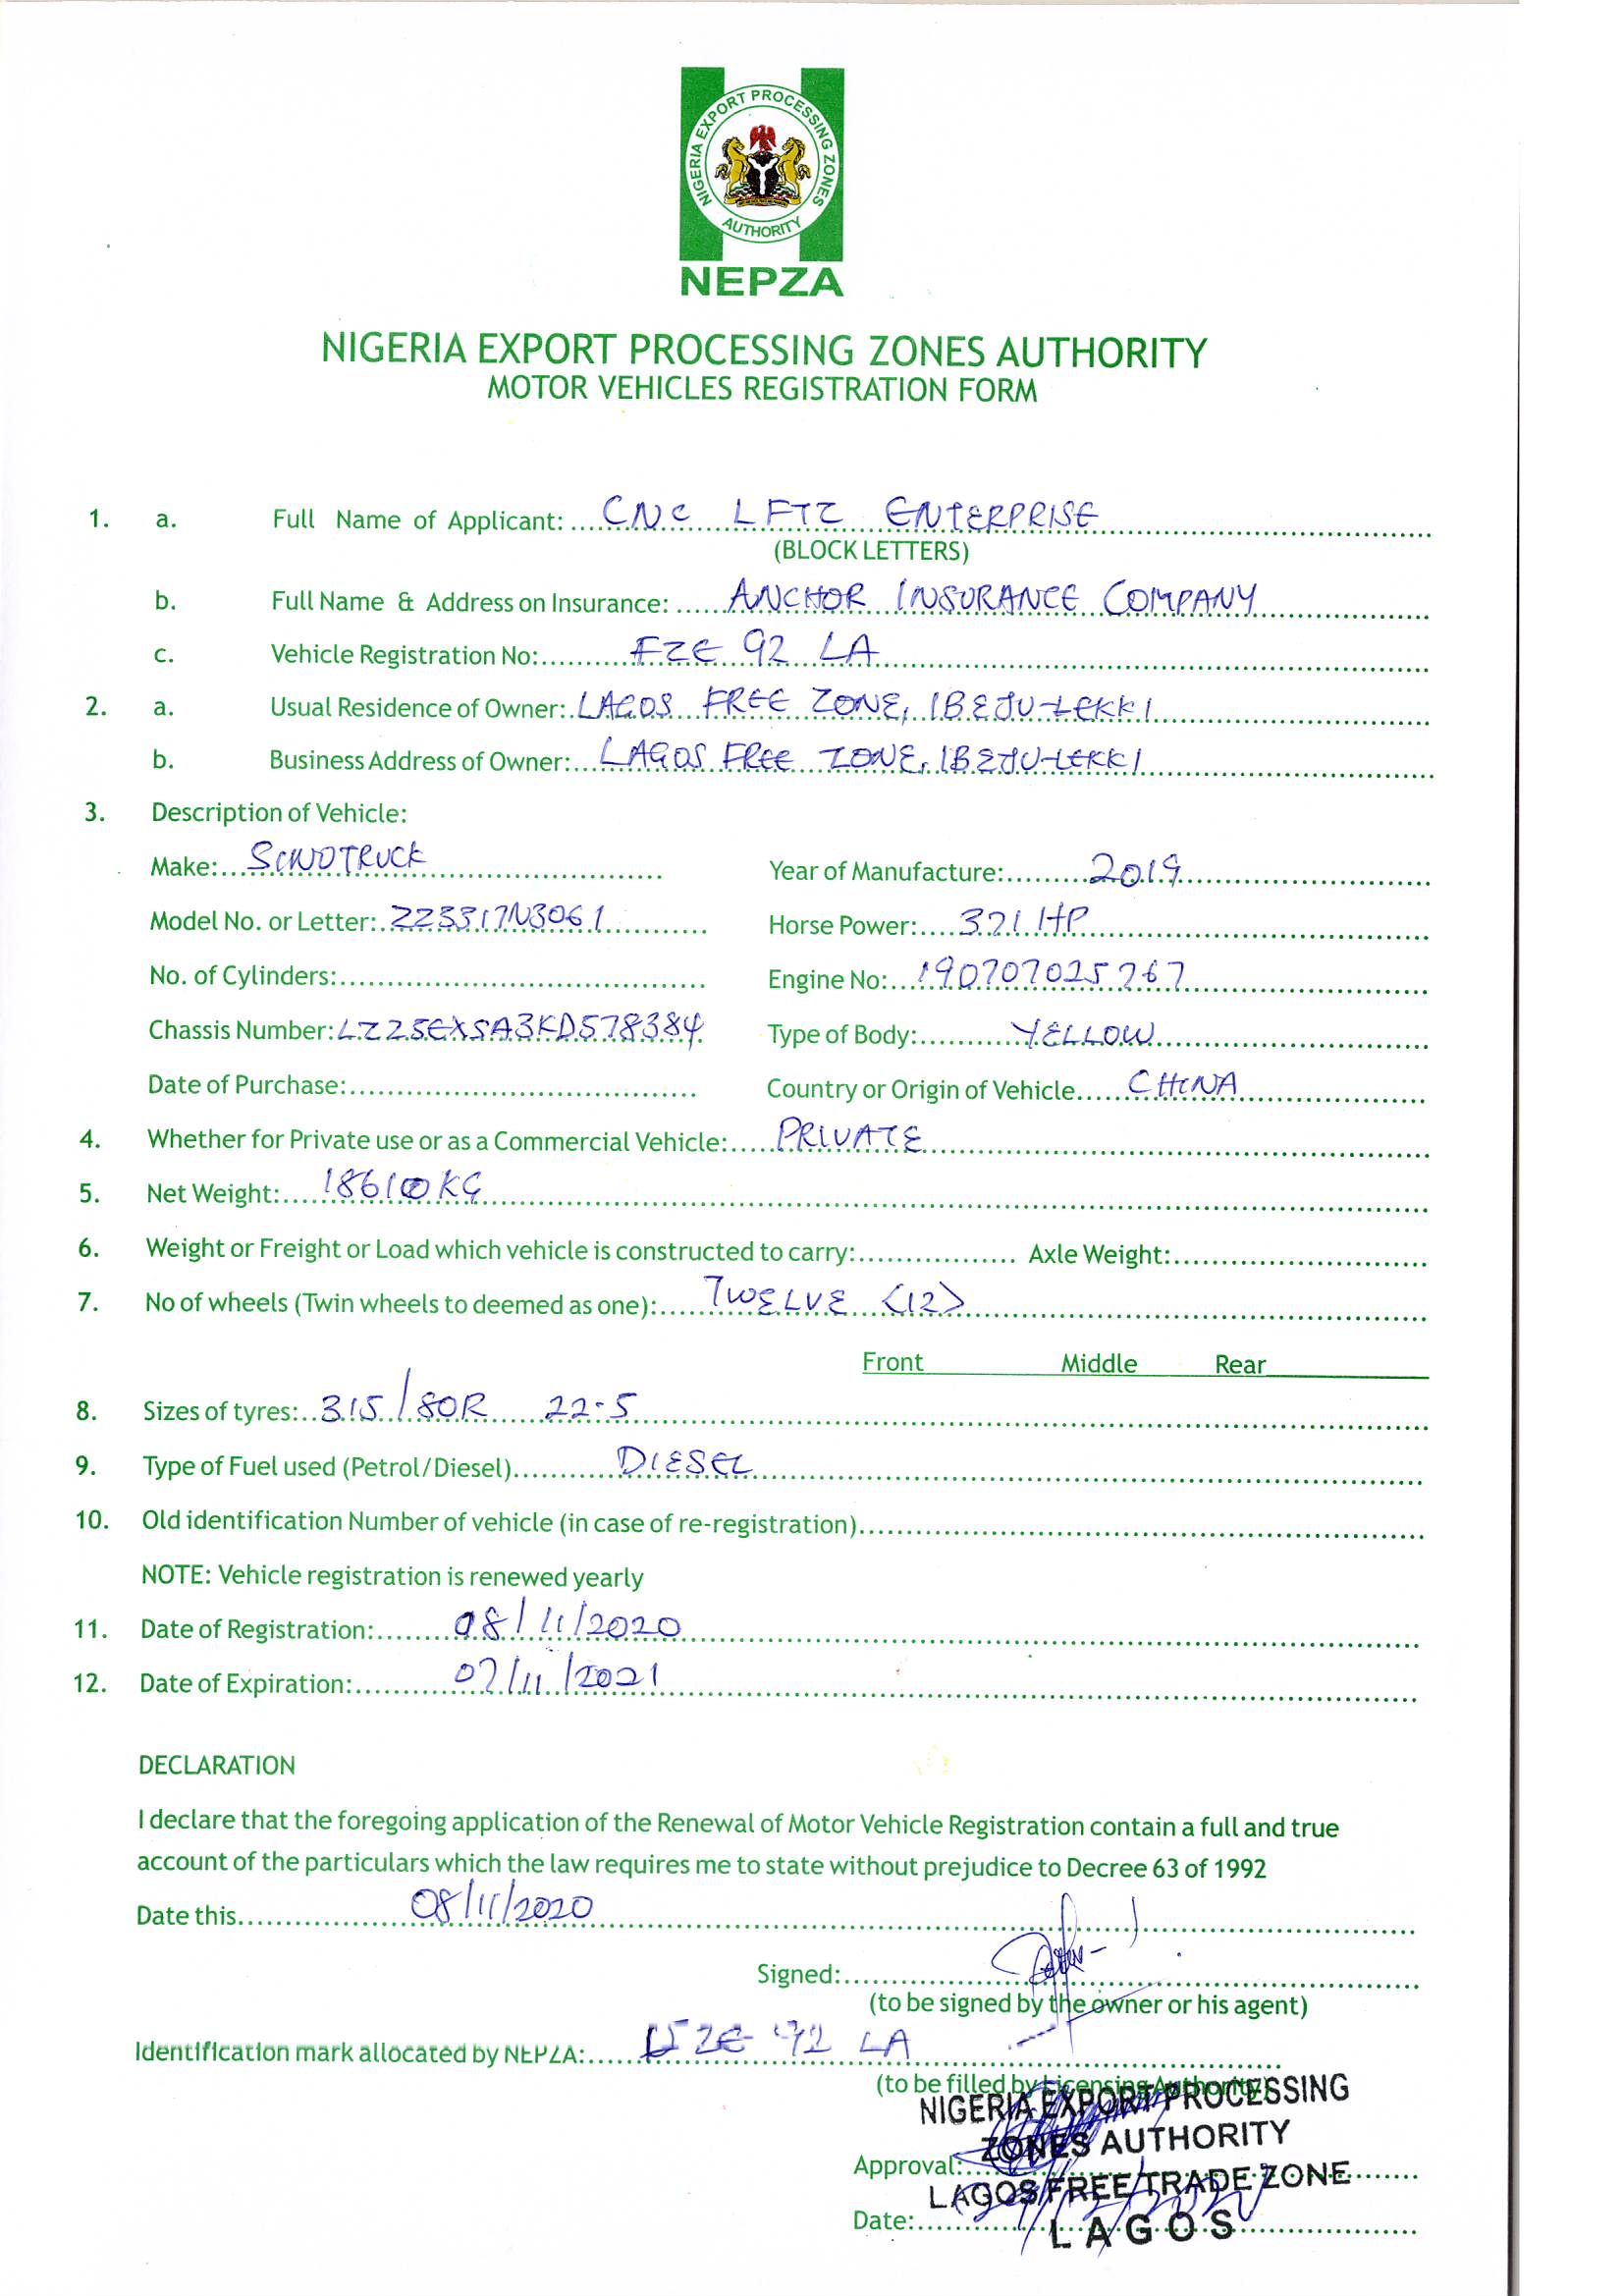 NIGERIA EXPORT PROCESSING ZONES
AUTHORITY
NEPZA
NIGERIA EXPORT PROCESSING ZONES AUTHORITY
MOTOR VEHICLES REGISTRATION FORM
1. a. Full Name of Applicant: CNC LFTZ ENTERPRISE
(BLOCK LETTERS)
b. Full Name & Address on Insurance: ANCHOR INSURANCE COMPANY
c. Vehicle Registration No: FZE 92 LA
2. a. Usual Residence of Owner: LAGOS FREE ZONE, IBEJU-LEKKI
b. Business Address of Owner: LAGOS FREE ZONE, IBEJU-LEKKI
3. Description of Vehicle:
Make: SINOTRUCK Year of Manufacture: 2019
Model No. or Letter: ZZ3317N3061 Horse Power: 371 HP
No. of Cylinders: Engine No: 190707025767
Chassis Number: LZZ5EXSA3KD578384 Type of Body: YELLOW
Date of Purchase: Country or Origin of Vehicle CHINA
4. Whether for Private use or as a Commercial Vehicle: PRIVATE
5. Net Weight: 18610 KG
6. Weight or Freight or Load which vehicle is constructed to carry: Axle Weight:
7. No of wheels (Twin wheels to deemed as one): TWELVE (12)
Front Middle Rear
8. Sizes of tyres: 315/80R 22.5
9. Type of Fuel used (Petrol/Diesel) DIESEL
10. Old identification Number of vehicle (in case of re-registration)
NOTE: Vehicle registration is renewed yearly
11. Date of Registration: 08/11/2020
12. Date of Expiration: 07/11/2021
DECLARATION
I declare that the foregoing application of the Renewal of Motor Vehicle Registration contain a full and true
account of the particulars which the law requires me to state without prejudice to Decree 63 of 1992
Date this 08/11/2020
Signed:
(to be signed by the owner or his agent)
Identification mark allocated by NEPZA: FZE 92 LA
(to be filled by Licensing Authority)
NIGERIA EXPORT PROCESSING
ZONES AUTHORITY
Approval:
LAGOS FREE TRADE ZONE
Date:
LAGOS